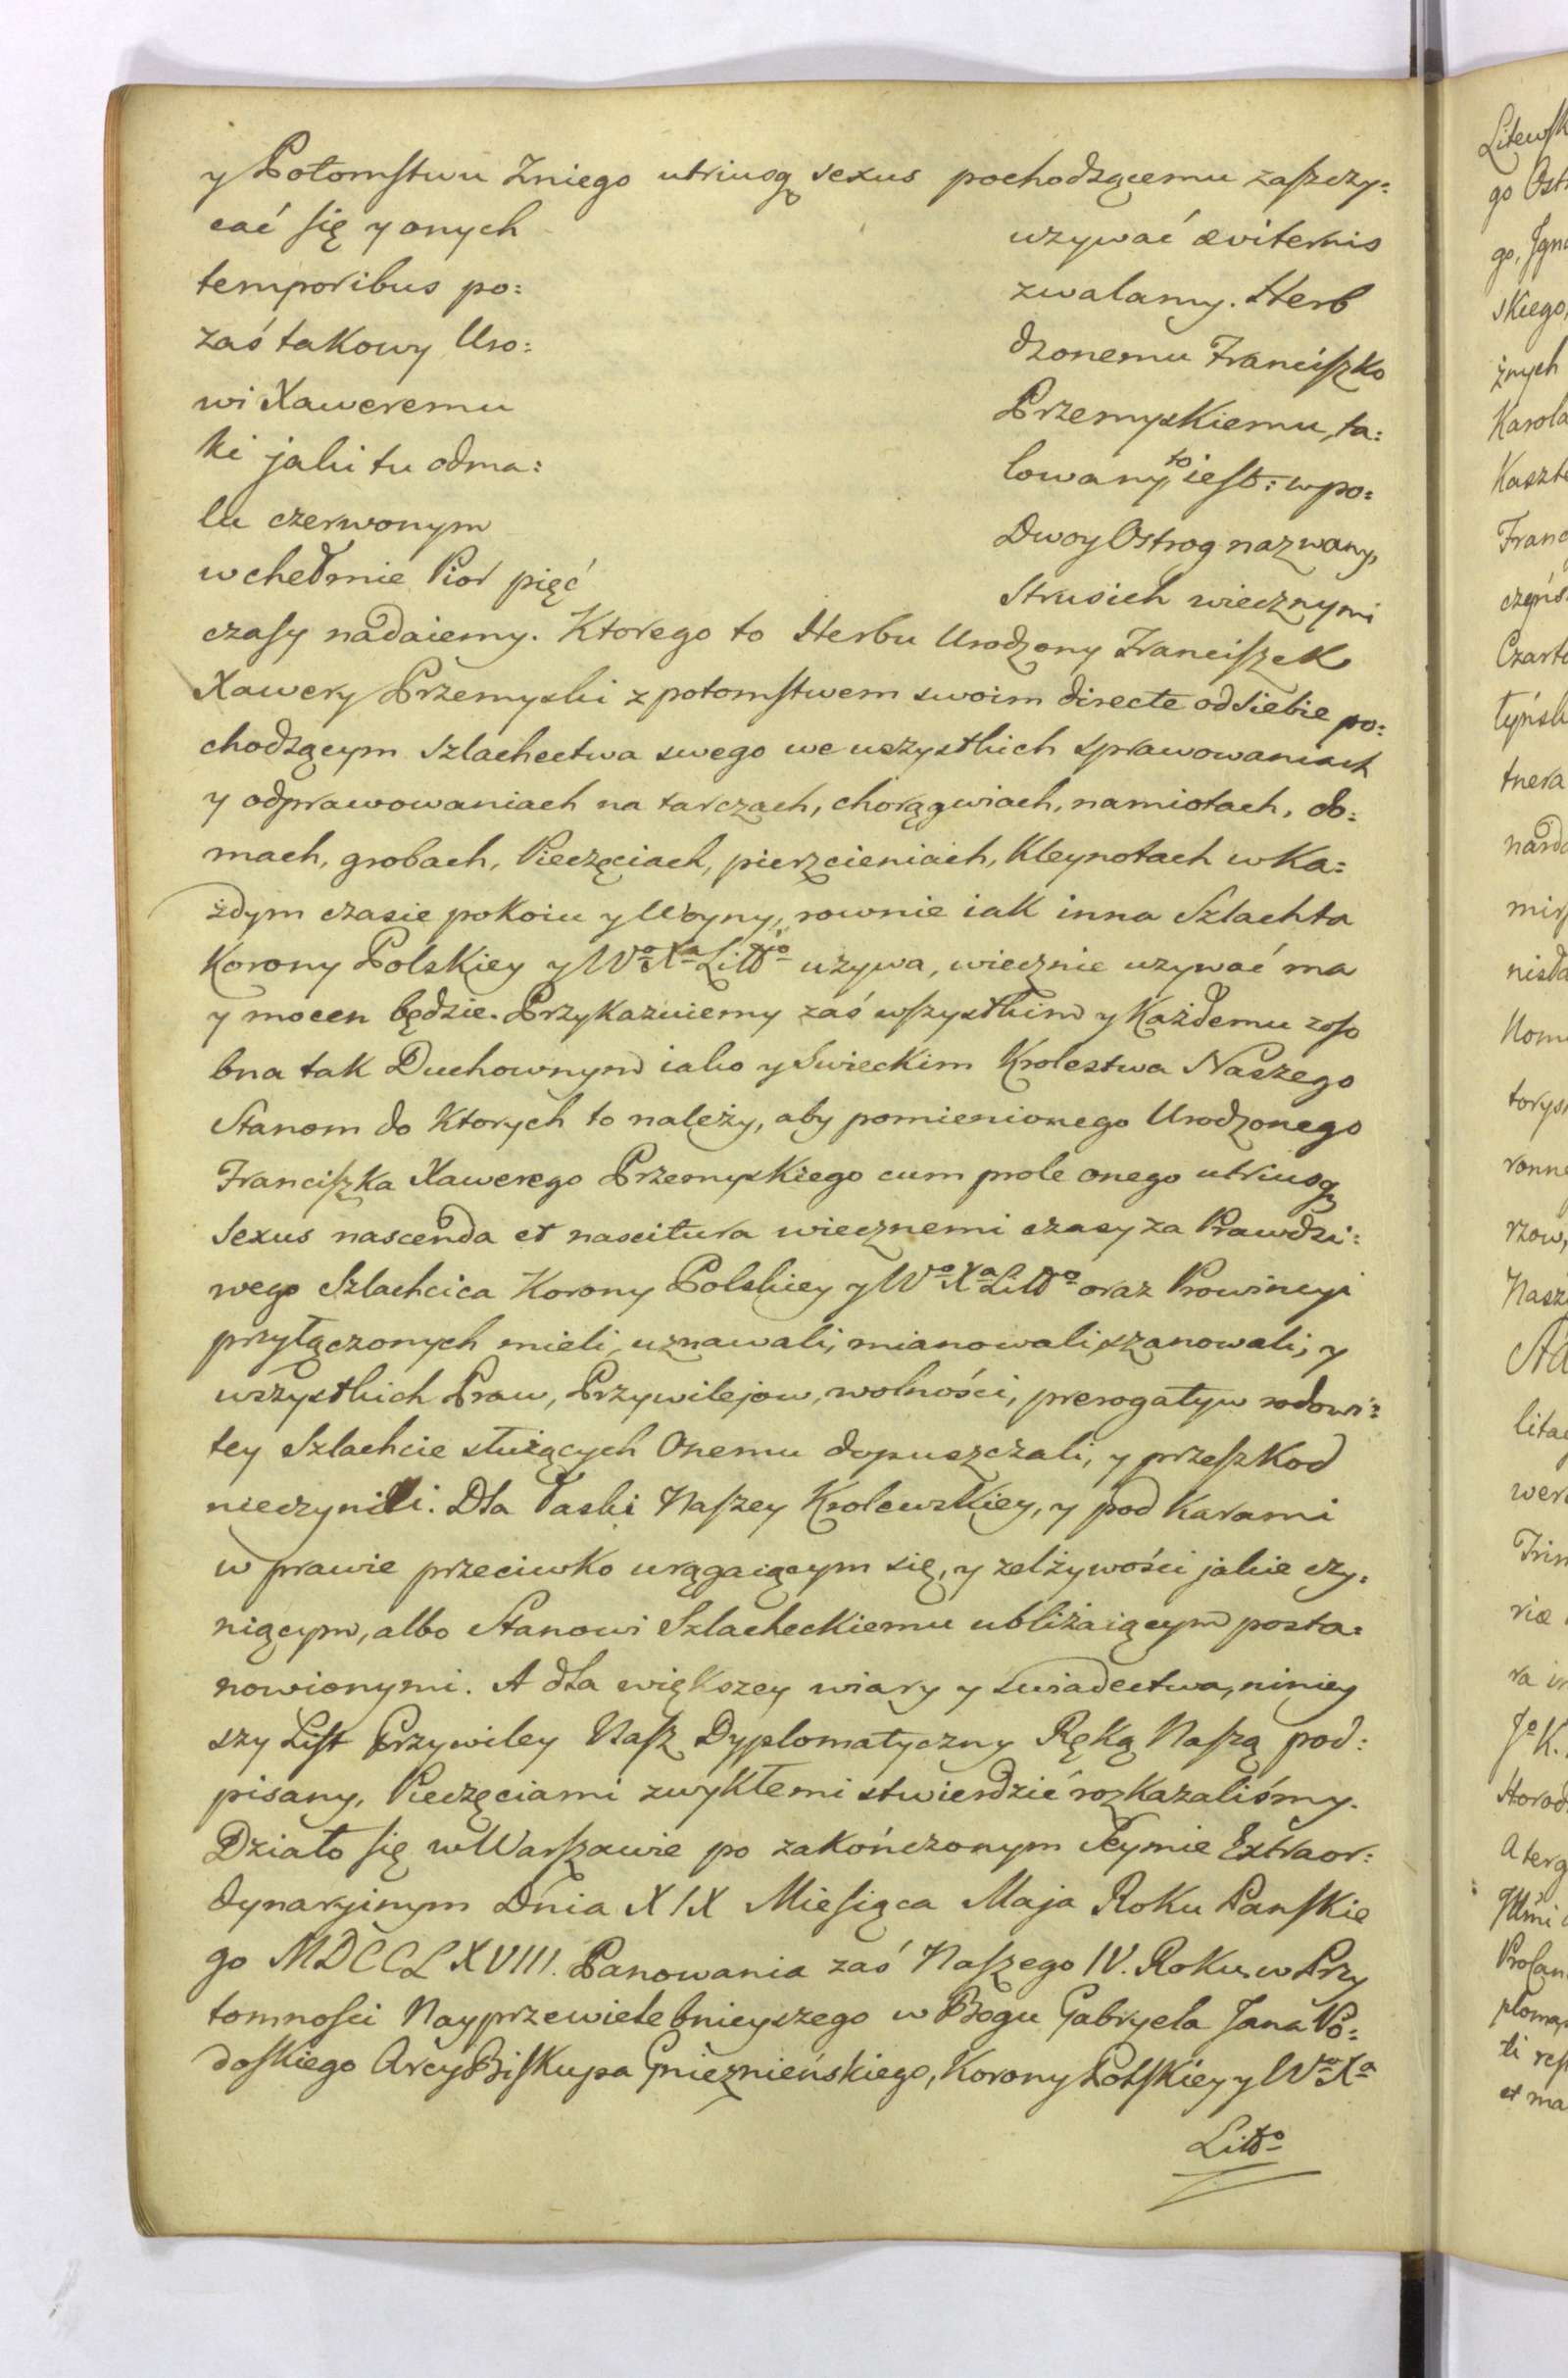 y Potomstwu Zniego utriusq sexus pochodzącemu zaszczy:
cać się y onych uzywać æviternis
temporibus po: zwalamy. Herb
zaś takowy Uro: dzonemu Franciszko
wi Xaweremu Przemyskiemu, ta:
ki jaki tu odma: lowany to iest: w po:
lu czerwonym Dwoy Ostrog nazwany,
w chełmie Pior pięć Strusich wiecznymi
czasy nadaiemy. Ktorego to Herbu Urodzony Franciszek
Xawery Przemyski z potomstwem swoim directe od siebie po:
chodzącym Szlachectwa swego we wszystkich sprawowaniach
y odprawowaniach na tarczach, chorągwiach, namiotach, do:
mach, grobach, Pieczęciach, pierzcieniach, Kleynotach w Ka:
żdym czasie pokoiu y Woyny, rownie iak inna Szlachta
Korony Polskiey y Wo Xa Litto uzywa, wiecznie uzywać ma
y mocen będzie. Przykazuiemy zaś wszystkim y Każdemu zoso
bna tak Duchownym iako y Swieckim Krolestwa Naszego
Stanom do Ktorych to należy, aby pomienionego Urodzonego
Franciszka Xawerego Przemyskiego cum prole onego utriusq
Sexus nascenda et nascitura wiecznemi czasy za Prawdzi:
wego Szlachcica Korony Polskiey y Wo Xa Litto oraz Prowincyi
przyłączonych mieli, uznawali, mianowali, szanowali, y
wszystkich Praw, Przywilejow, wolności, prerogatyw rodowi:
tey Szlachcie służących Onemu dopuszczali, y przeszkod
nieczynili. Dla Łaski Naszey Krolewskiey, y pod Karami
w prawie przeciwko urągaiącym się, y zelżywości jakie czy:
niącym, albo Stanowi Szlacheckiemu ubliżaiącym posta:
nowionymi. A dla większey wiary y swiadectwa, niniey
szy List Przywiley Nasz Dyplomatyczny Ręką Naszą pod:
pisany, Pieczęciami zwykłemi stwierdzić rozkazaliśmy.
Działo się w Warszawie po zakończonym Seymie Extraor:
dynaryinym Dnia XIX Miesiąca Maja Roku Panskie
go MDCCLXVIII. Panowania zaś Naszego IV. Roku. w Przy
tomnosci Nayprzewielebnieyszego w Bogu Gabryela Jana Po:
doskiego Arcy Biskupa Gnieznieńskiego, Korony Polskiéy y Wo Xa
Litto